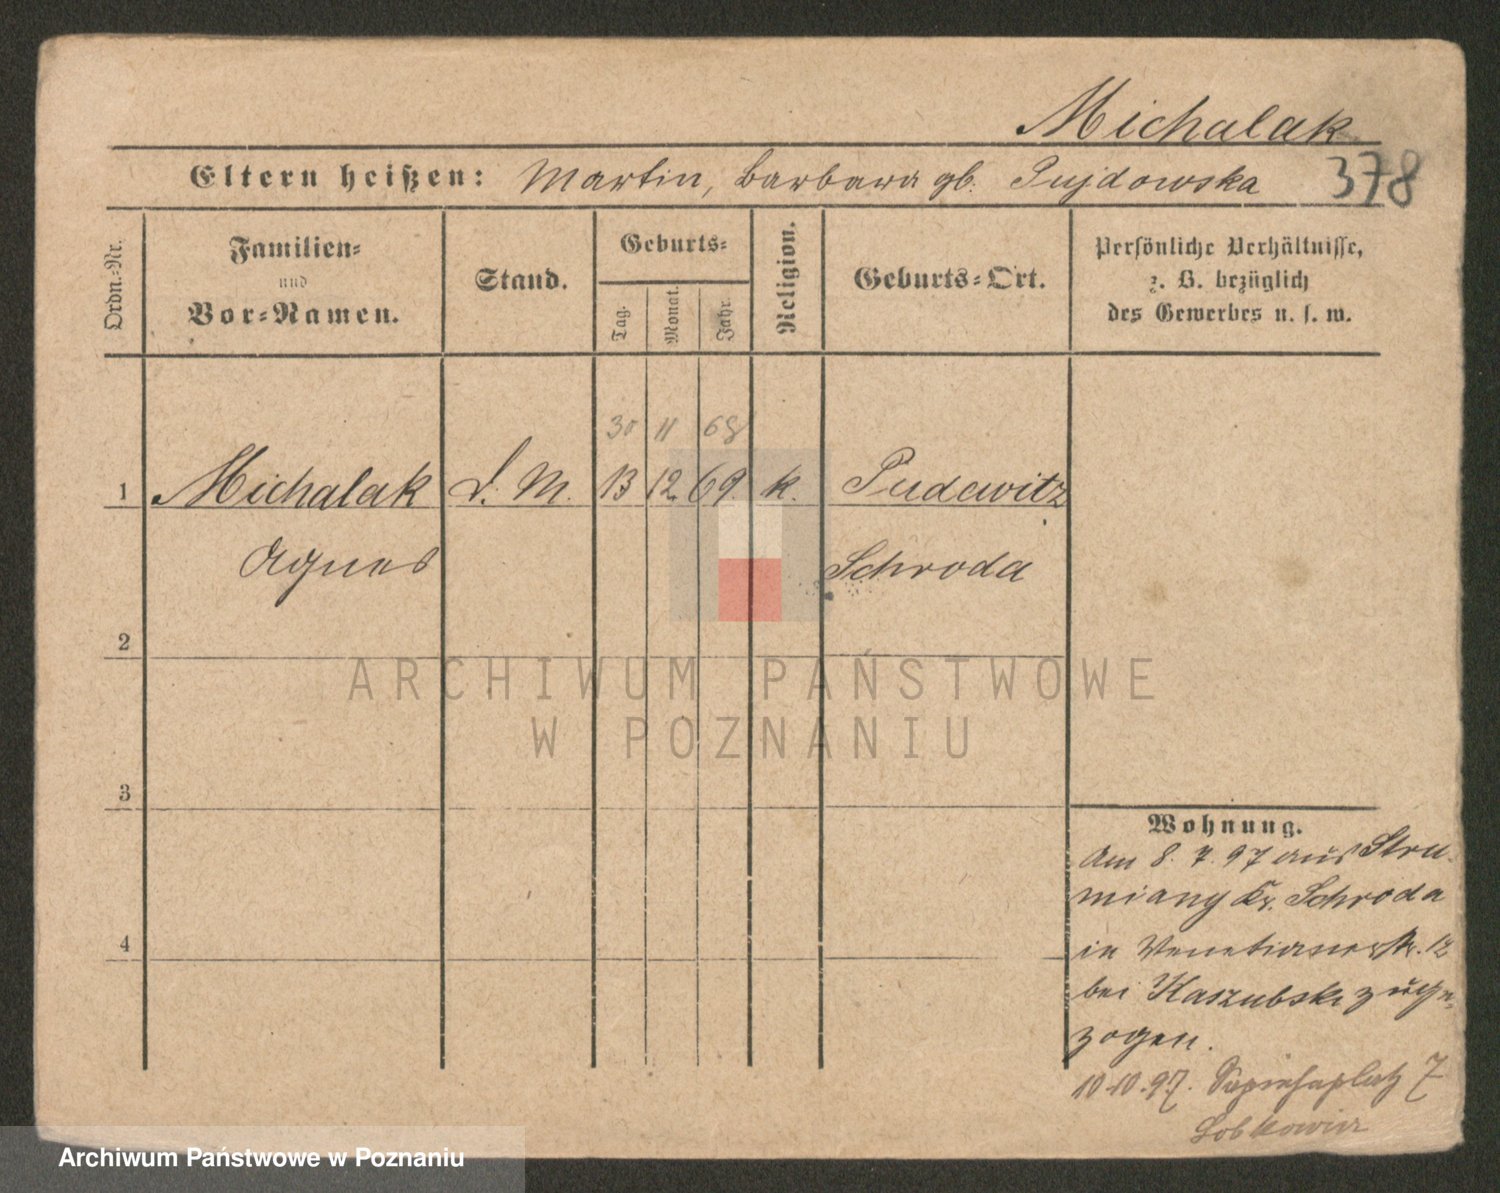 Michalak
Eltern heißen: Martin, Barbara gb. Pujdowska 378
Ordn.-Nr.
Familien-
und
Vor-Namen.
Stand.
Geburts-
Tag.
Monat.
Jahr.
Religion.
Geburts-Ort.
Persönliche Verhältnisse,
z. B. bezüglich
des Gewerbes u. s. w.
30 11 68
1 Michalak d. M. 13 12 69 k. Pudewitz
Agnes Schroda
2
ARCHIWUM PAŃSTWOWE
W POZNANIU
3
Wohnung.
Am 8. 7. 97 aus Stru-
miany Kr. Schroda
in Venetianerstr. 12
bei Kaszubski zuge-
zogen.
4
10.10.97. Sapiehaplatz 7
Lobkowicz
Archiwum Państwowe w Poznaniu